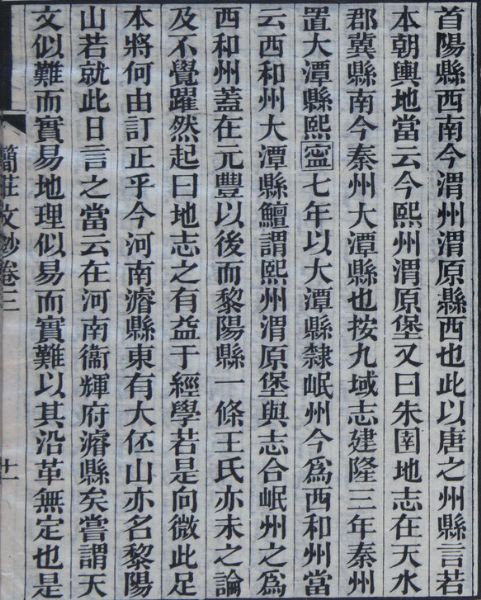 首陽縣西南今渭州渭原縣西也此以唐之州縣言若
本朝輿地當云今熙州渭原堡又曰朱圉地志在天水
郡冀縣南今秦州大潭縣也按九域志建隆三年秦州
置大潭縣熙寧七年以大潭縣隸岷州今爲西和州當
云西和州大潭縣鱣謂熙州渭原堡與志合岷州之爲
西和州蓋在元豐以後而黎陽縣一條王氏亦未之論
及不覺躍然起曰地志之有益于經學若是向微此足
本將何由訂正乎今河南濬縣東有大伾山亦名黎陽
山若就此日言之當云在河南衞輝府濬縣矣嘗謂天
文似難而實易地理似易而實難以其沿革無定也是
簡莊文鈔卷三
十一